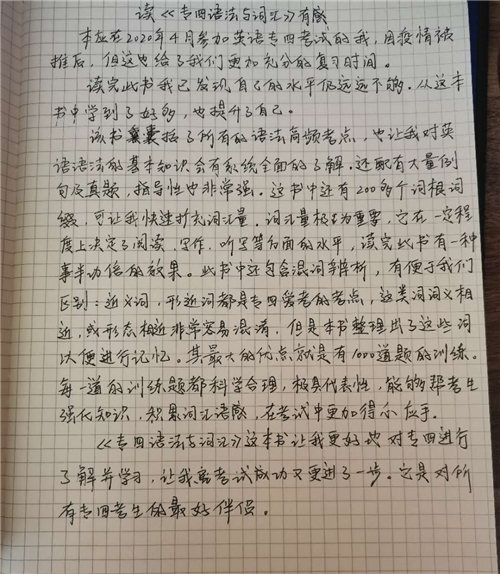 读《专四语法与词汇》有感
本应在2020年4月参加英语专四考试的我，因疫情被
推后，但这也给了我们更加充分的复习时间。
读完此书我已发现自己的水平仍远远不够。从这本
书中学到了好多，也提升了自己。
该书囊括了所有的语法高频考点，也让我对英
语语法的基本知识会有系统全面的了解。还配有大量例
句及真题，指导性也非常强。这书中还有200多个词根词
缀，可让我快速扩充词汇量。词汇量极为重要，它在一定程
度上决定了阅读、写作、听写等方面的水平，读完此书有一种
事半功倍的效果。此书中还包含混词辨析，有便于我们
区别：近义词，形近词都是专四爱考的考点，这类词词义相
近，或形态相近非常容易混淆，但是本书整理出了这些词
以便进行记忆。其最大的优点就是有1000道题的训练。
每一道的训练题都科学合理，极具代表性，能够帮考生
强化知识，积累词汇语感，在考试中更加得心应手。
《专四语法与词汇》这本书让我更好地对专四进行
了解并学习，让我离考试成功又更进了一步。它是对所
有专四考生的最好伴侣。